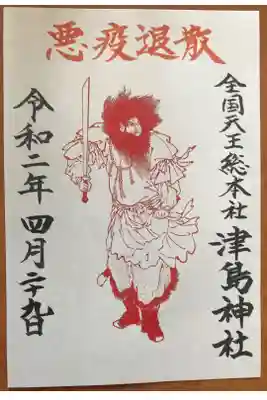 悪疫退散
全国天王総本社 津島神社
令和二年 四月二十九日